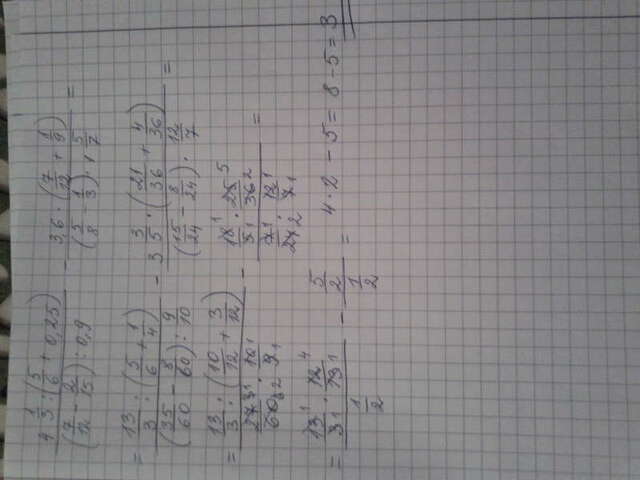 (4 1/3 : (5/6 + 0,25)) / ((7/12 - 2/15) : 0,9) - (3,6 · (7/12 + 1/9)) / ((5/8 - 1/3) · 1 5/7) =
= (13/3 : (5/6 + 1/4)) / ((35/60 - 8/60) : 9/10) - (3 3/5 · (21/36 + 4/36)) / ((15/24 - 8/24) · 12/7) =
= (13/3 : (10/12 + 3/12)) / (27/60 · 10/9) - (18/5 · 25/36) / (7/24 · 12/7) =
= (13/3 · 12/13) / (1/2) - (5/2) / (1/2) = 4 · 2 - 5 = 8 - 5 = 3